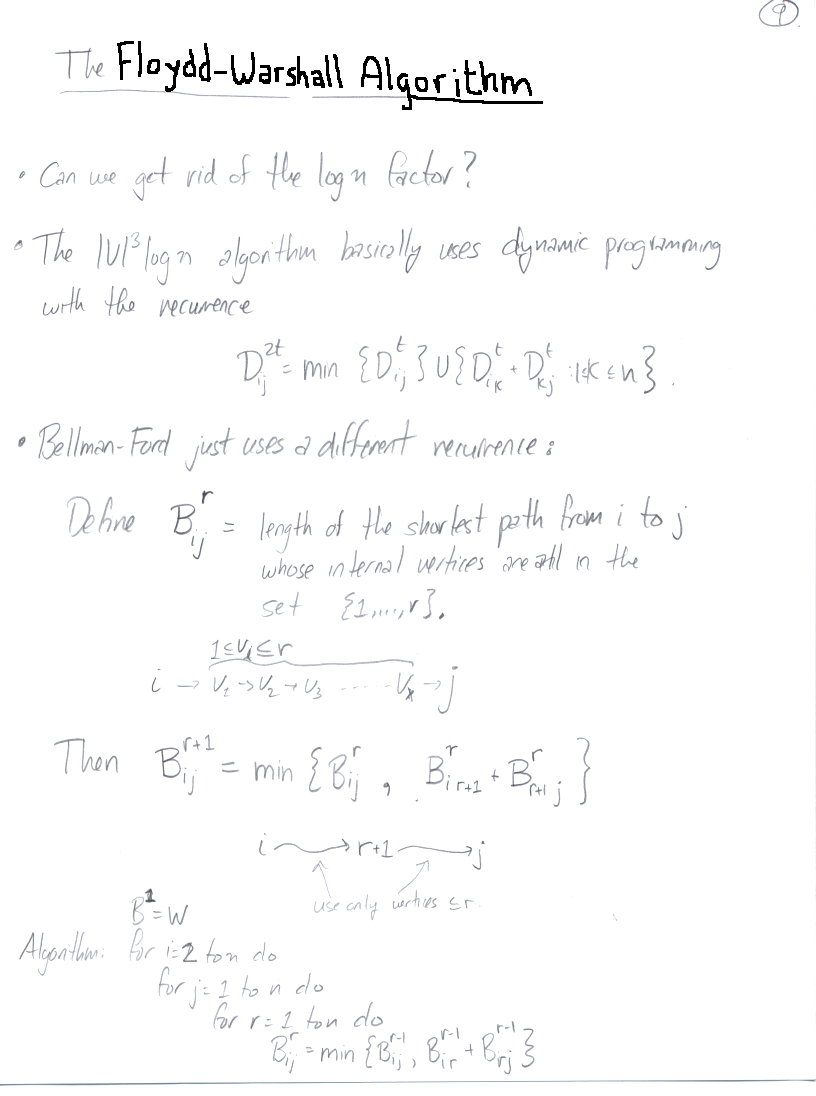 9
The Floydd-Warshall Algorithm
• Can we get rid of the log n factor?
• The |V|³ log n algorithm basically uses dynamic programming
with the recurrence
D_{ij}^{2t} = min {D_{ij}^{t}} ∪ {D_{ik}^{t} + D_{kj}^{t} : 1≤k≤n}.
• Bellman-Ford just uses a different recurrence:
Define B_{ij}^{r} = length of the shortest path from i to j
whose internal vertices are all in the
set {1,...,r}.
1≤v_i≤r
i → v₁ → v₂ → v₃ ------ v_x → j
Then B_{ij}^{r+1} = min {B_{ij}^{r}, B_{i r+1}^{r} + B_{r+1 j}^{r}}
i → r+1 → j
use only vertices ≤ r.
B¹ = W
Algorithm: for i=2 to n do
for j=1 to n do
for r=1 to n do
B_{ij}^{r} = min {B_{ij}^{r-1}, B_{ir}^{r-1} + B_{rj}^{r-1}}